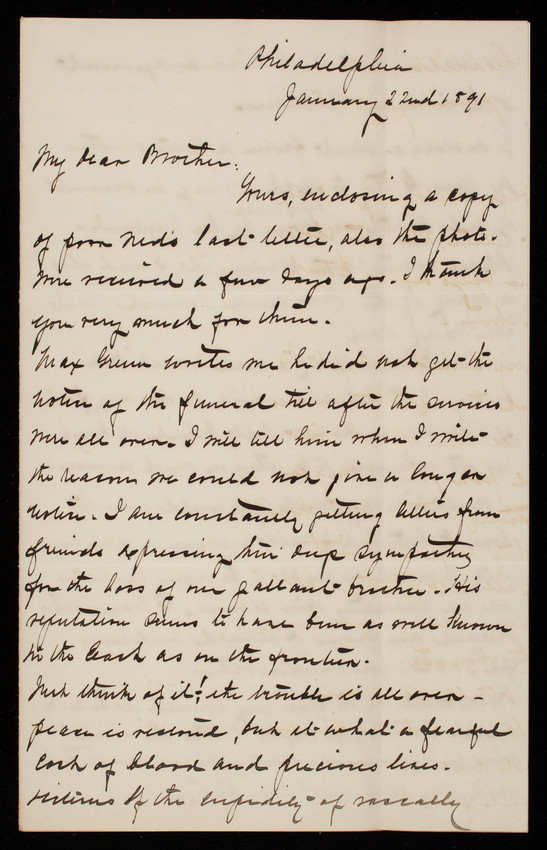 Philadelphia
January 22nd 1891
My Dear Brother:
Yours, enclosing a copy
of poor Ned's last letter, also the photo.
were received a few days ago. I thank
you very much for them.
Max Green writes me he did not get the
notice of the funeral till after the services
were all over. I will tell him when I write
the reason we could not give a longer
notice. I am constantly getting letters from
friends expressing their deep sympathy
for the loss of our gallant brother. His
reputation seems to have been as well known
in the East as on the frontier.
Just think of it! the trouble is all over -
peace is restored, but at what a fearful
cost of blood and precious lives.
victims of the cupidity of rascally